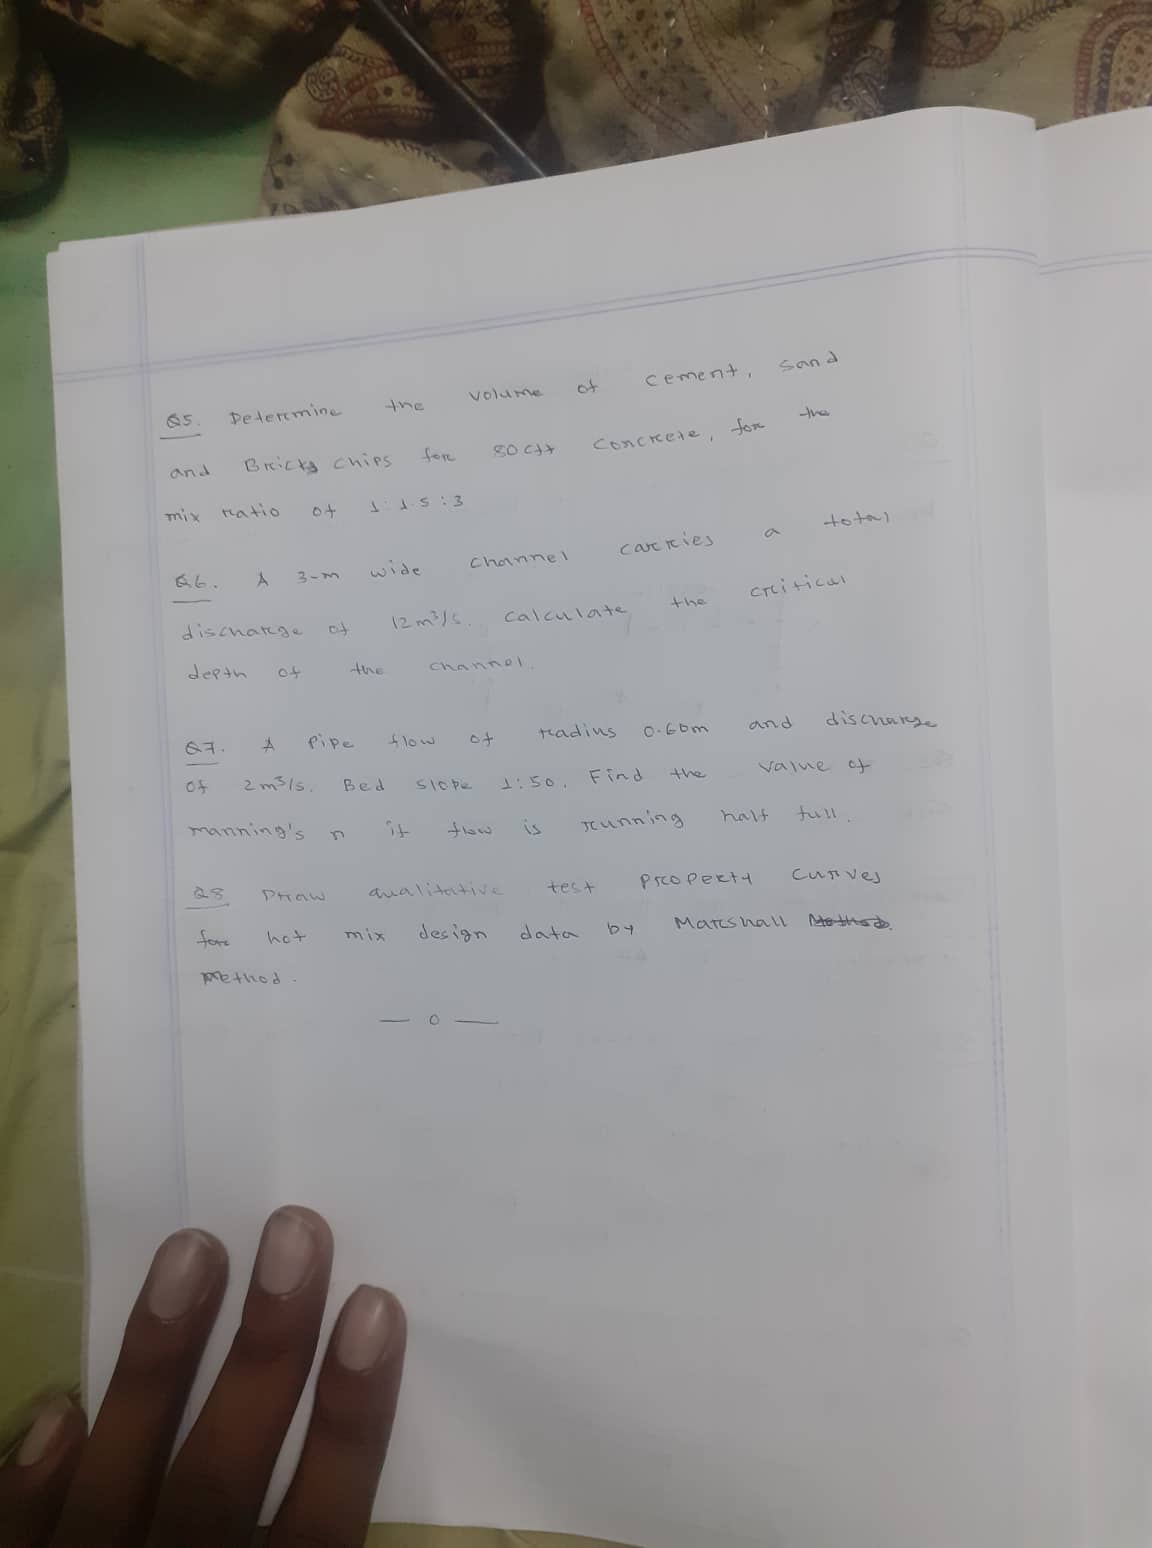 Q5. Determine the volume of cement, sand
and Bricks chips for 80 cft concrete, for the
mix ratio of 1:1.5:3
Q6. A 3-m wide channel carries a total
discharge of 12m³/s. calculate the critical
depth of the channel.
Q7. A pipe flow of radius 0.60m and discharge
of 2m³/s. Bed slope 1:50. Find the value of
manning's n if flow is running half full.
Q8. Draw qualitative test property curves
for hot mix design data by Marshall Method.
Method.
— 0 —